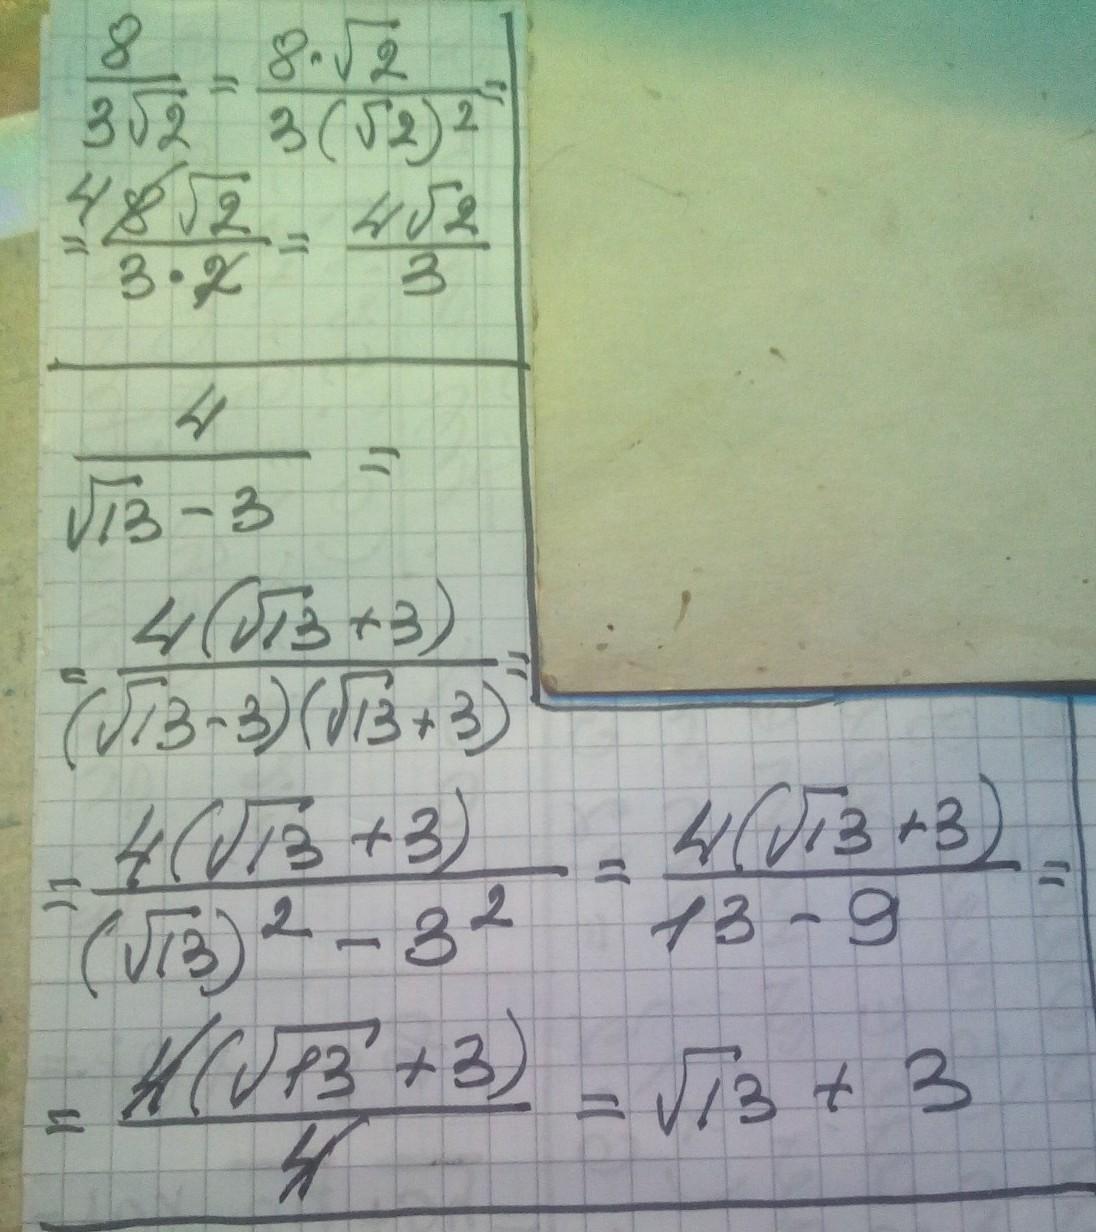 8/(3√2) = (8·√2)/(3(√2)²) =
= 4 8√2/(3·2) = 4√2/3
4/(√13 - 3) =
= 4(√13 + 3)/((√13 - 3)(√13 + 3)) =
= 4(√13 + 3)/((√13)² - 3²) = 4(√13 + 3)/(13 - 9) =
= 4(√13 + 3)/4 = √13 + 3